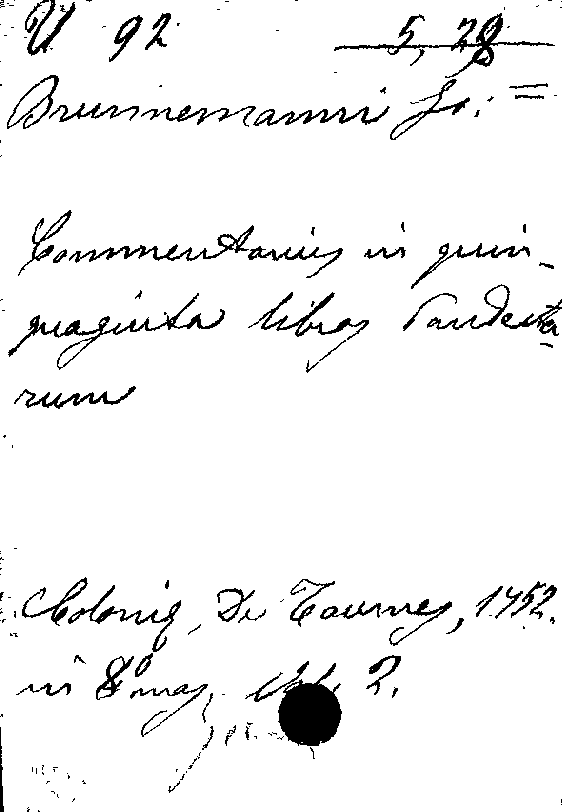 U 92 5, 28
Brunnemanni Jo: =
Commentarius in quin-
quaginta libros Pandecta-
rum
Colonię, De Tournes, 1752.
in 8º mag. Vol. 2.